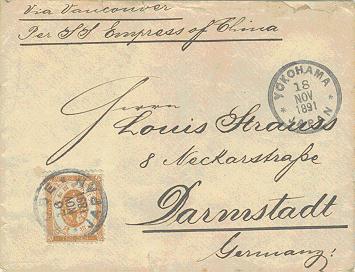 Via Vancouver
Per SS Empress of China
YOKOHAMA
18
NOV
1891
JAPAN
Herrn
Louis Strauss
8 Neckarstraße
Darmstadt
Germany!
NOV
JAPAN